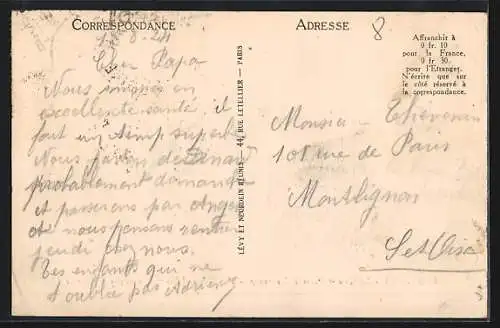 CORRESPONDANCE
8-24
Cher Papa
Nous sommes en
excellente santé il
fait un temps superbe
Nous partons
probablement
et passerons par
et nous pensons rentrer
jeudi chez nous.
Tes enfants qui ne
t'oublie pas
LÉVY ET NEURDEIN RÉUNIS — 44, RUE LETELLIER — PARIS
ADRESSE
8
Affranchir à
0 fr. 10
pour la France,
0 fr 30.
pour l'Etranger.
N'écrire que sur
le côté réservé à
la correspondance.
Monsieur Thévenin
101 rue de Paris
Montlignon
Set Oise